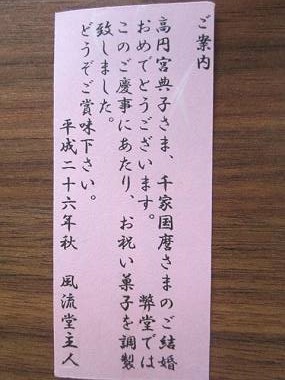 ご案内
高円宮典子さま、千家国麿さまのご結婚
おめでとうございます。　弊堂では
このご慶事にあたり、お祝い菓子を調製
致しました。
どうぞご賞味下さい。
平成二十六年秋　風流堂主人